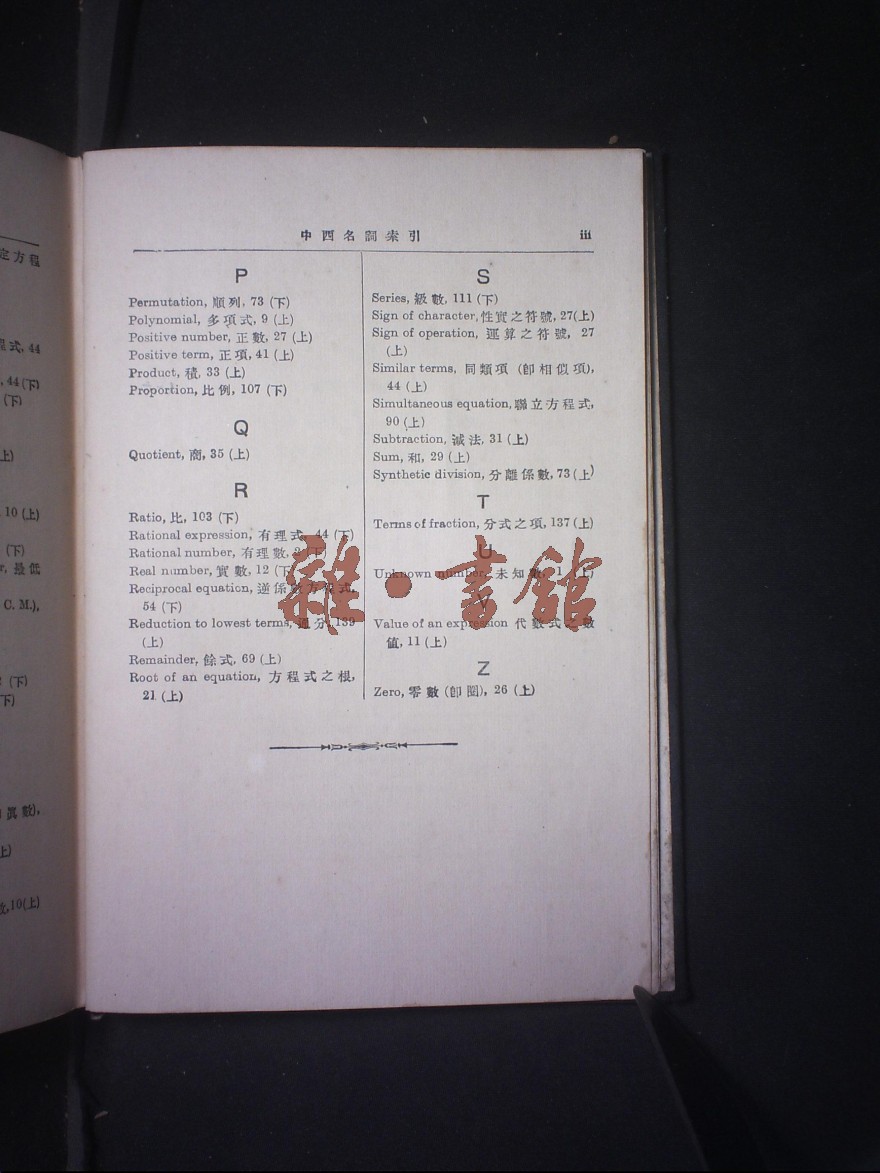 中西名詞索引 iii
P
Permutation, 順列, 73 (下)
Polynomial, 多項式, 9 (上)
Positive number, 正數, 27 (上)
Positive term, 正項, 41 (上)
Product, 積, 33 (上)
Proportion, 比例, 107 (下)
Q
Quotient, 商, 35 (上)
R
Ratio, 比, 103 (下)
Rational expression, 有理式, 44 (下)
Rational number, 有理數,
Real number, 實數, 12 (下)
Reciprocal equation, 逆係數方程式,
54 (下)
Reduction to lowest terms, 通分, 139
(上)
Remainder, 餘式, 69 (上)
Root of an equation, 方程式之根,
21 (上)
S
Series, 級數, 111 (下)
Sign of character, 性質之符號, 27(上)
Sign of operation, 運算之符號, 27
(上)
Similar terms, 同類項 (卽相似項),
44 (上)
Simultaneous equation, 聯立方程式,
90 (上)
Subtraction, 減法, 31 (上)
Sum, 和, 29 (上)
Synthetic division, 分離係數, 73 (上)
T
Terms of fraction, 分式之項, 137 (上)
U
Unknown number, 未知數, (上)
V
Value of an expression 代數式之數
值, 11 (上)
Z
Zero, 零數 (卽圈), 26 (上)
雜·書館
定方程
程式, 44
, 44 (下)
(下)
上)
, 10 (上)
(下)
r, 最低
C. M.),
(下)
下)
眞數),
上)
數, 10(上)